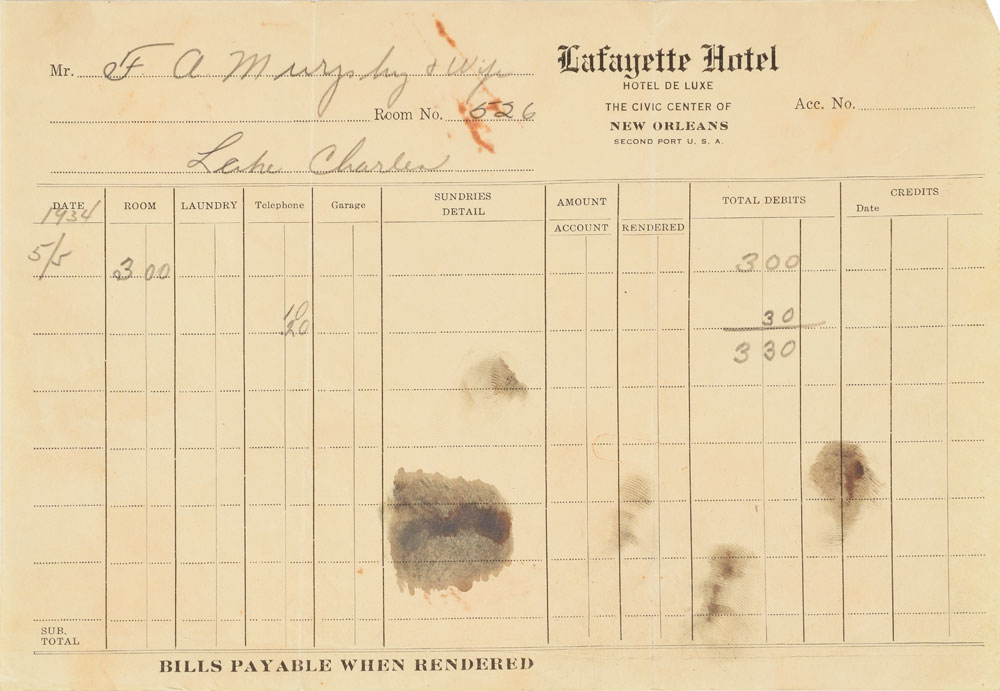 Mr. F A Murphy & Wife
Room No. 526
Lake Charles
Lafayette Hotel
HOTEL DE LUXE
THE CIVIC CENTER OF
NEW ORLEANS
SECOND PORT U. S. A.
Acc. No.
DATE ROOM LAUNDRY Telephone Garage SUNDRIES DETAIL AMOUNT TOTAL DEBITS CREDITS
1934 ACCOUNT RENDERED Date
5/5 3 00 3 00
10
20 30
3 30
SUB. TOTAL
BILLS PAYABLE WHEN RENDERED